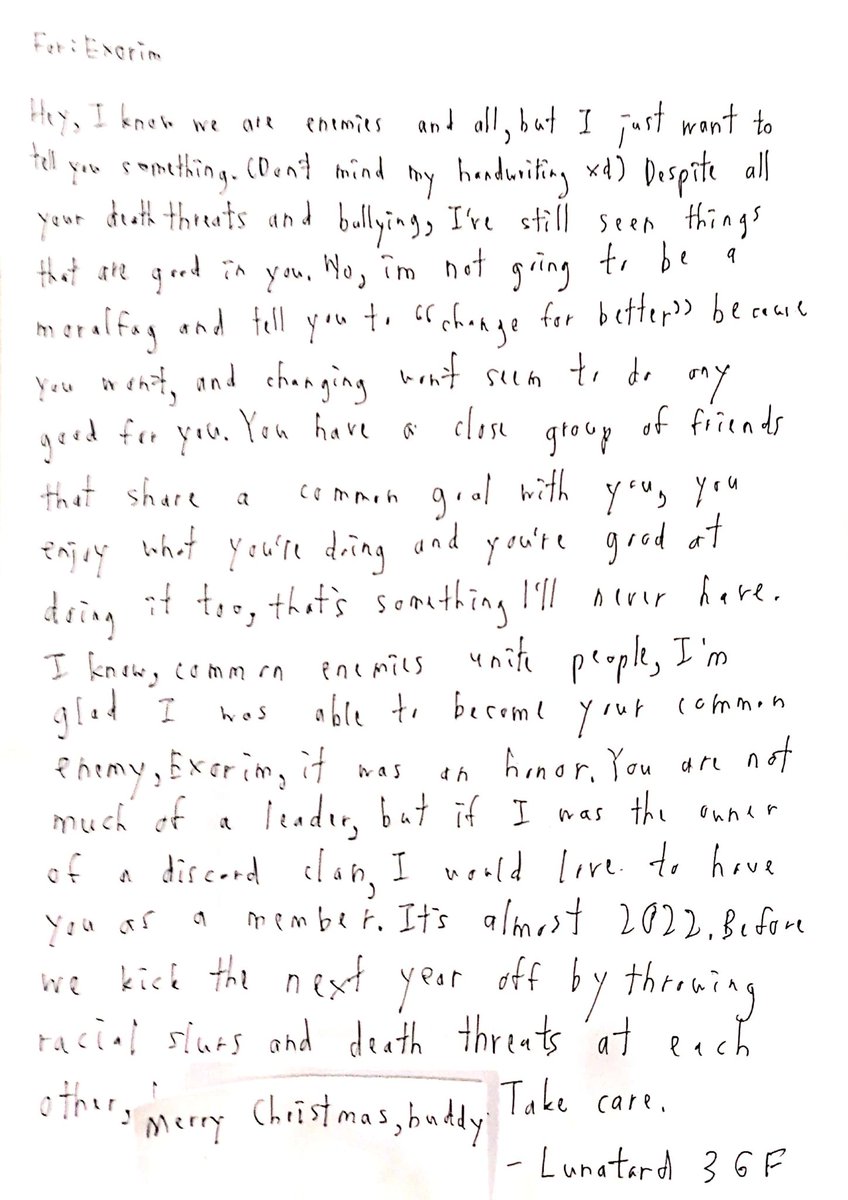 For: Exorim
Hey, I know we are enemies and all, but I just want to
tell you something. (Don't mind my handwriting xd) Despite all
your death threats and bullying, I've still seen things
that are good in you. No, im not going to be a
moralfag and tell you to “change for better” because
you won't, and changing won't seem to do any
good for you. You have a close group of friends
that share a common goal with you, you
enjoy what you're doing and you're good at
doing it too, that's something I'll never have.
I know, common enemies unite people, I'm
glad I was able to become your common
enemy, Exorim, it was an honor. You are not
much of a leader, but if I was the owner
of a discord clan, I would love to have
you as a member. It's almost 2022. Before
we kick the next year off by throwing
racial slurs and death threats at each
other, Merry Christmas, buddy. Take care.
- Lunatard 3GF